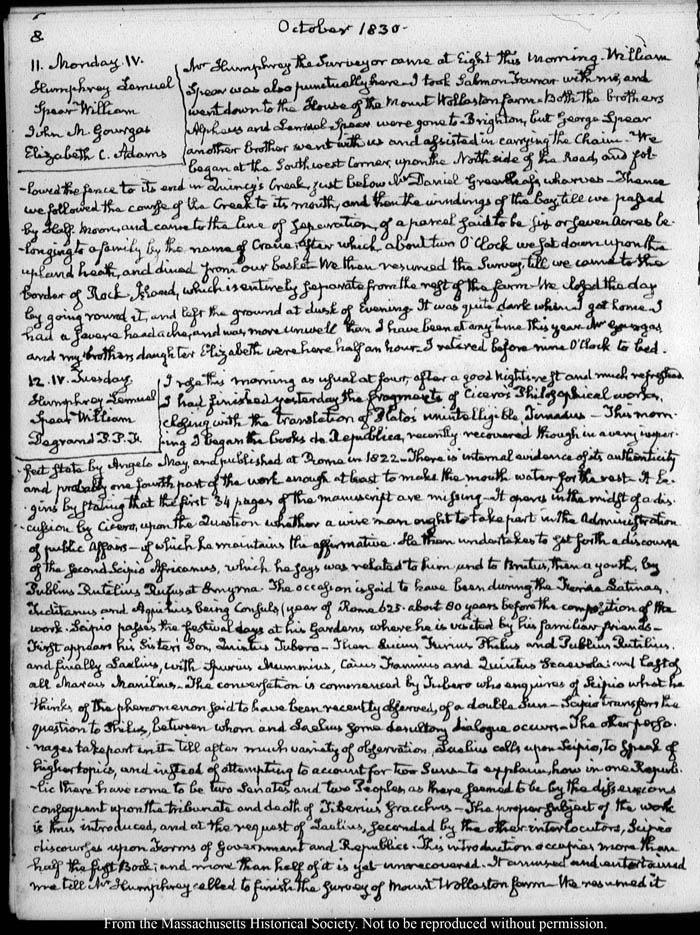 8
October 1830.
11. Monday. IV.
Humphrey Lemuel
Spear William
John M. Gourgas
Elizabeth C. Adams
Mr Humphrey the Surveyor came at Eight this Morning. William
Spear was also punctually here. I took Salmon Farrar with me, and
went down to the House of the Mount Wollaston farm. Both the brothers
Alpheus and Lemuel Spear were gone to Brighton, but George Spear
another brother went with us and assisted in carrying the Chain. We
began at the Southwest Corner, upon the North side of the Road, and fol-
-lowed the fence to its end in Quincy's Creek, just below Mr Daniel Greenleaf's wharves. Thence
we followed the course of the Creek to its mouth, and then the windings of the Bay, till we passed
by Half Moon, and came to the line of separation, of a parcel said to be six or seven Acres be-
-longing to a family by the name of Crane, after which, about two O'Clock we sat down upon the
upland heath, and dined from our basket. We then resumed the Survey, till we came to the
border of Rock Island, which is entirely separate from the rest of the farm. We closed the day
by going round it, and left the ground at dusk of Evening. It was quite dark when I got home. I
had a severe headache, and was more unwell than I have been at any time this year. Mr Gourgas
and my brother's daughter Elizabeth were here half an hour. I retired before nine O'Clock to bed.
12. IV. Tuesday.
Humphrey Lemuel
Spear William
Degrand P. P. F.
I rose this morning as usual at four, after a good Night's rest and much refreshed.
I had finished yesterday the fragments of Cicero's Philosophical works,
closing with the translation of Plato's unintelligible Timaeus — This morn-
ing I began the books de Republica, recently recovered though in a very imper-
-fect state by Angelo May, and published at Rome in 1822. There is internal evidence of its authenticity
and probably one fourth part of the work enough at least to make the mouth water for the rest. It be-
-gins by stating that the first 34 pages of the manuscript are missing. It opens in the midst of a dis-
-cussion by Cicero, upon the Question whether a wise man ought to take part in the Administration
of public Affairs — of which he maintains the affirmative. He then undertakes to set forth a discourse
of the second Scipio Africanus, which he says was related to him and to Brutus, then a youth, by
Publius Rutilius Rufus at Smyrna. The occasion is said to have been during the Feriae Latinae,
Tuditanus and Aquilius being Consuls (year of Rome 625. about 80 years before the composition of the
work. Scipio passes the festival days at his Gardens, where he is visited by his familiar friends —
First appears his Sister's Son, Quintus Tubero — Then Lucius Furius Philus and Publius Rutilius,
and finally Laelius, with Spurius Mummius, Caius Fannius and Quintus Scaevola: and last of
all Marcus Manilius — The conversation is commenced by Tubero who enquires of Scipio what he
thinks of the phenomenon said to have been recently observed, of a double Sun — Scipio transfers the
question to Philus, between whom and Laelius some desultory dialogue occurs — The other perso-
-nages take part in it till after much variety of observation, Laelius calls upon Scipio, to speak of
higher topics, and instead of attempting to account for two Suns to explain, how in one Republ-
-lic there have come to be two Senates, and two Peoples, as there seemed to be by the dissensions
consequent upon the tribunate and death of Tiberius Gracchus — The proper subject of the work
is thus introduced, and at the request of Laelius, seconded by the other interlocutors, Scipio
discourses upon Forms of Government and Republics. This introduction occupies more than
half the first Book; and more than half of it is yet unrecovered. It amused and entertained
me till Mr Humphrey called to finish the survey of Mount Wollaston farm — We resumed it
From the Massachusetts Historical Society. Not to be reproduced without permission.